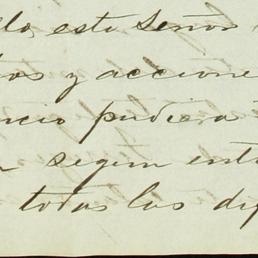 do, este Señor
os y accione
ncio pudiera
segun ent
todas las di